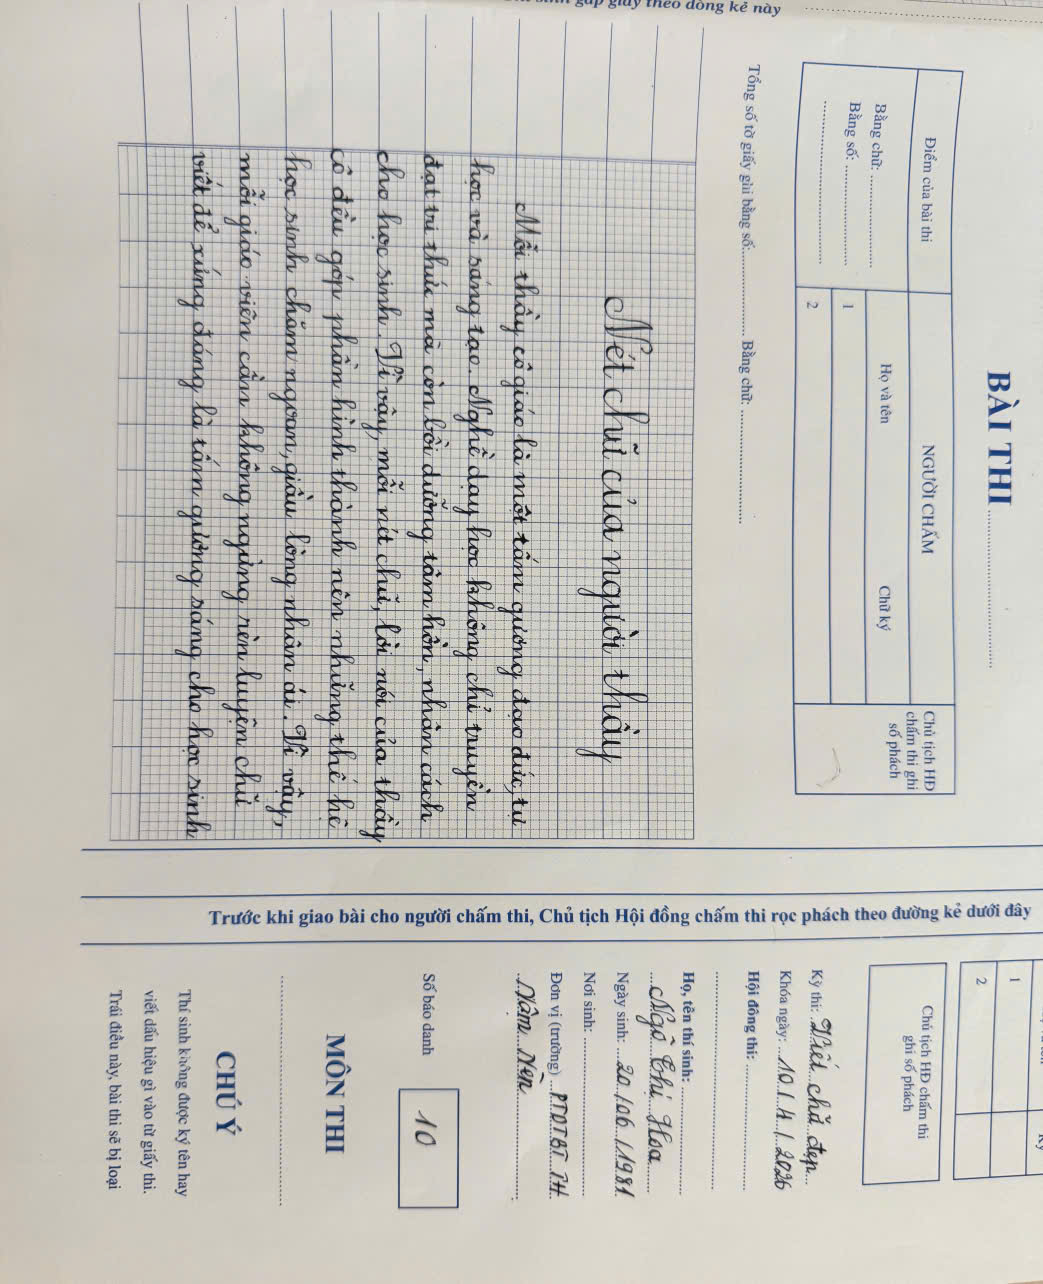 gấp giấy theo dòng kẻ này
BÀI THI
Điểm của bài thi
NGƯỜI CHẤM
Chủ tịch HĐ
chấm thi ghi
số phách
Bằng chữ:
Bằng số:
Họ và tên
Chữ ký
1
2
Tổng số tờ giấy ghi bằng số: Bằng chữ:
Nét chữ của người thầy
Mỗi thầy cô giáo là một tấm gương đạo đức, tự
học và sáng tạo. Nghề dạy học không chỉ truyền
đạt tri thức mà còn bồi dưỡng tâm hồn, nhân cách
cho học sinh. Vì vậy, mỗi nét chữ, lời nói của thầy
cô đều góp phần hình thành nên những thế hệ
học sinh chăm ngoan, giàu lòng nhân ái. Vì vậy,
mỗi giáo viên cần không ngừng rèn luyện chữ
viết để xứng đáng là tấm gương sáng cho học sinh
Trước khi giao bài cho người chấm thi, Chủ tịch Hội đồng chấm thi rọc phách theo đường kẻ dưới đây
1
2
Chủ tịch HĐ chấm thi
ghi số phách
Kỳ thi: Viết chữ đẹp
Khóa ngày: 10/4/2026
Hội đồng thi:
Họ, tên thí sinh:
Ngô Thị Hoa
Ngày sinh: 20/06/1981
Nơi sinh:
Đơn vị (trường) PTDTBT TH
Nậm Nẹn
Số báo danh
10
MÔN THI
CHÚ Ý
Thí sinh không được ký tên hay
viết dấu hiệu gì vào tờ giấy thi.
Trái điều này, bài thi sẽ bị loại